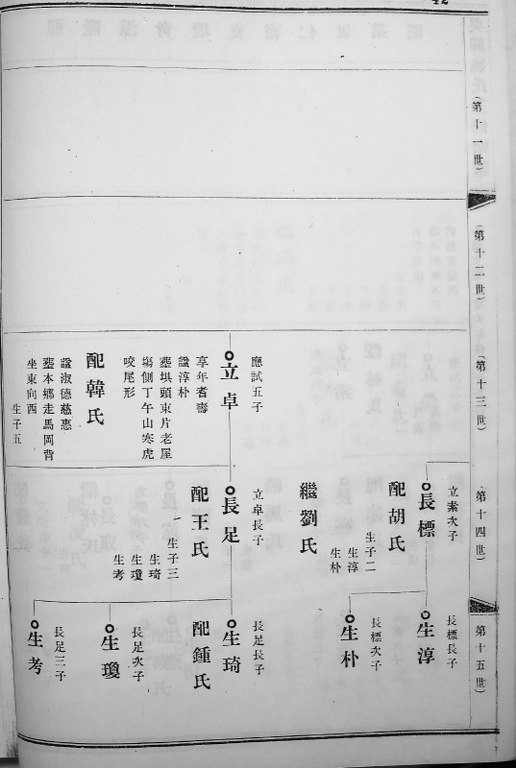 42
（第十一世）
（第十二世）
（第十三世）
（第十四世）
（第十五世）
應試五子
立卓
享年者壽
諡淳朴
塟垻頭東片老屋
塲側丁午山寒虎
咬尾形
配韓氏
諡淑德慈惠
塟本鄉走馬岡背
坐東向西
生子五
立素次子
長標
配胡氏
生子二
生淳
生朴
繼劉氏
立卓長子
長足
配王氏
生子三
生琦
生瓊
生考
長標長子
生淳
長標次子
生朴
長足長子
生琦
配鍾氏
長足次子
生瓊
長足三子
生考